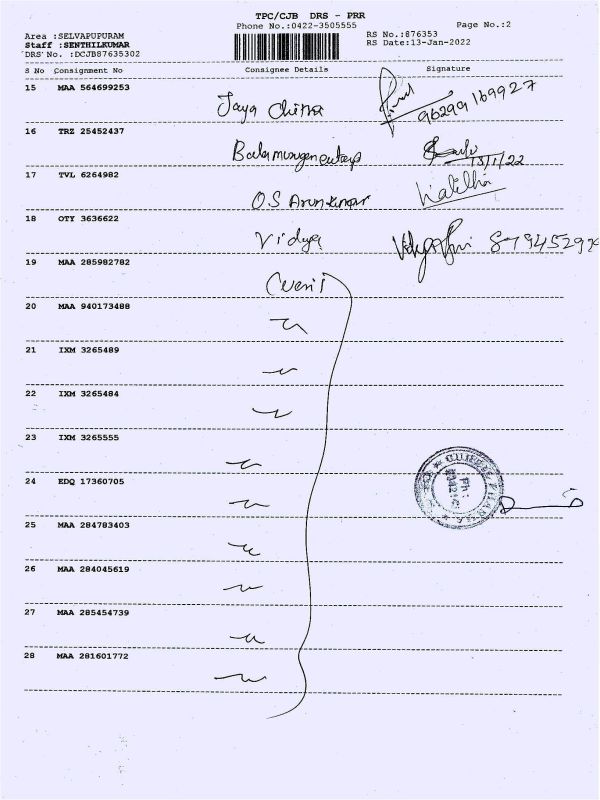 TPC/CJB DRS - PRR
Phone No.:0422-3505555 Page No.:2
Area :SELVAPUPURAM RS No.:876353
Staff :SENTHILKUMAR RS Date:13-Jan-2022
DRS No. :DCJB87635302
S No Consignment No Consignee Details Signature
15 MAA 564699253
Jaya Chitra 96299169927
16 TRZ 25452437
13/1/22
17 TVL 6264982
O.S Arunkumar
18 OTY 3636622
Vidya
19 MAA 285982782
20 MAA 940173488
21 IXM 3265489
22 IXM 3265484
23 IXM 3265555
24 EDQ 17360705
25 MAA 284783403
26 MAA 284045619
27 MAA 285454739
28 MAA 281601772